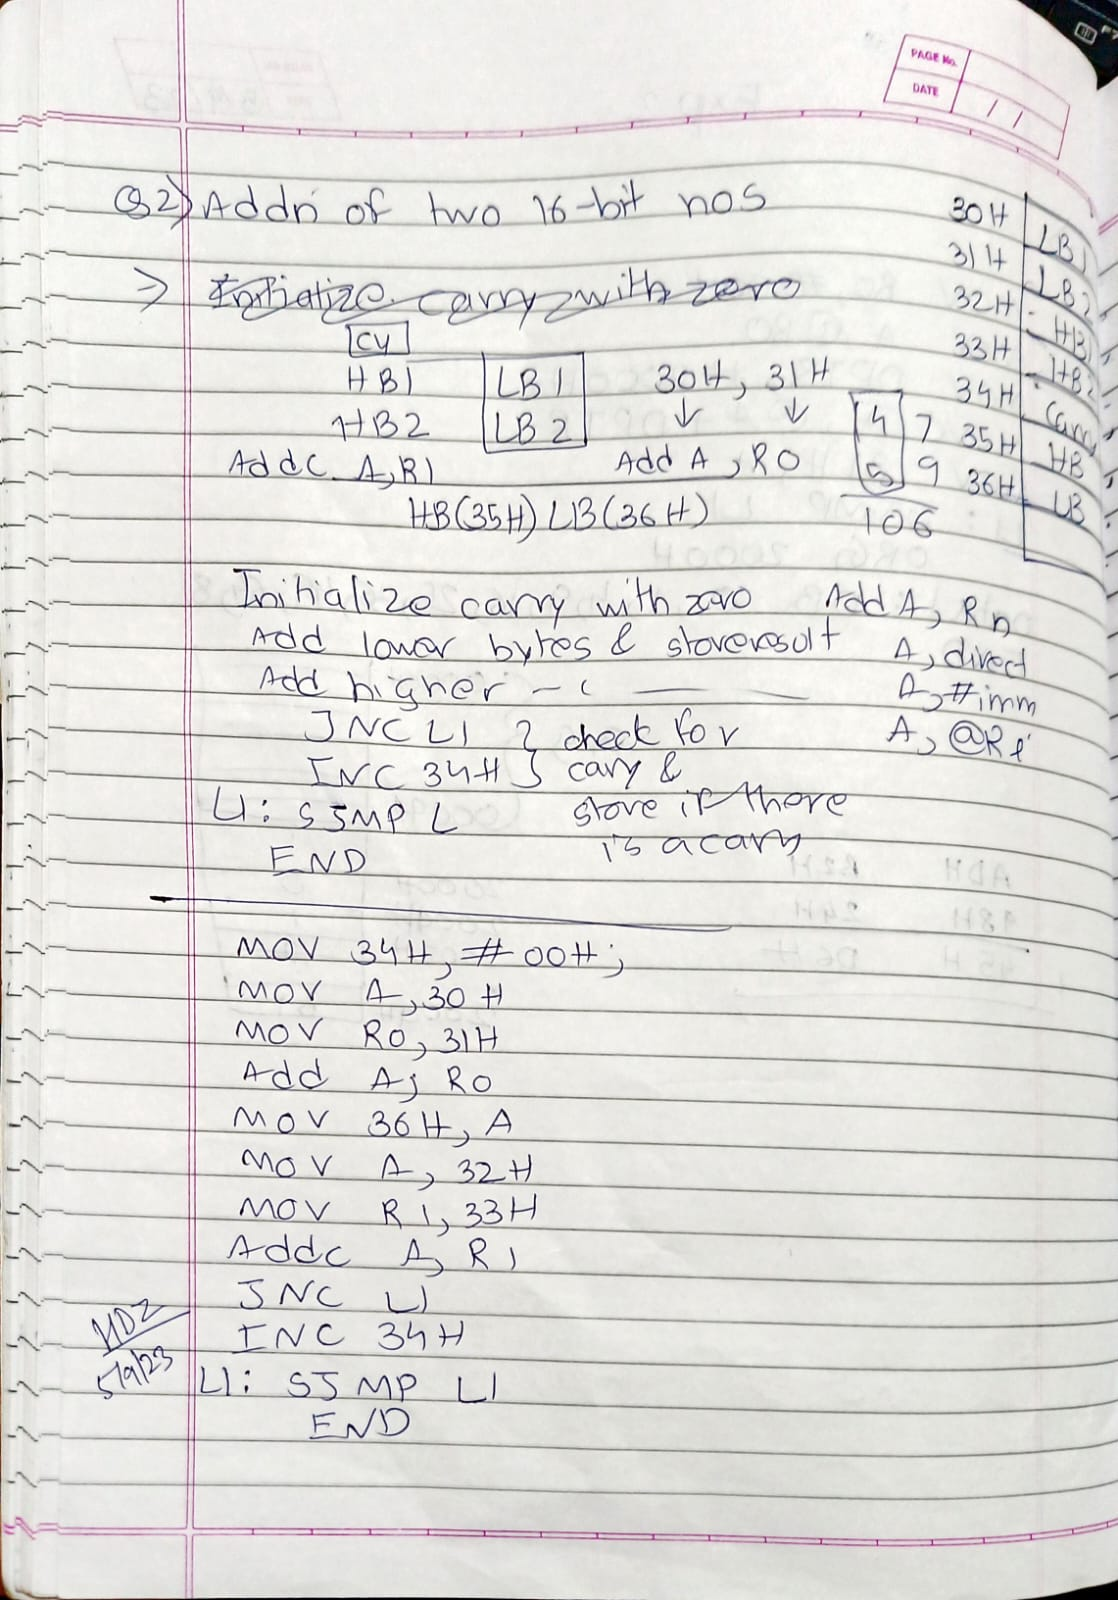 PAGE No.
DATE / /
Q2) Addn of two 16-bit nos
⇒ Initialize carry with zero
CY
HB1 LB1 30H, 31H
HB2 LB2 ↓ ↓
Addc A,R1 Add A, R0
HB(35H) LB(36H)
4 7
5 9
106
30H LB1
31H LB2
32H HB1
33H HB2
34H Carry
35H HB
36H LB
Initialize carry with zero Add A, Rn
Add lower bytes & store result A, direct
Add higher -"- A, #imm
JNC L1 } check for A, @Ri
INC 34H } cary &
L1: SJMP L store if there
END is a carry
MOV 34H, #00H;
MOV A,30H
MOV R0, 31H
Add A, R0
MOV 36H, A
MOV A, 32H
MOV R1, 33H
Addc A, R1
JNC L1
INC 34H
L1: SJMP L1
END
5/9/23